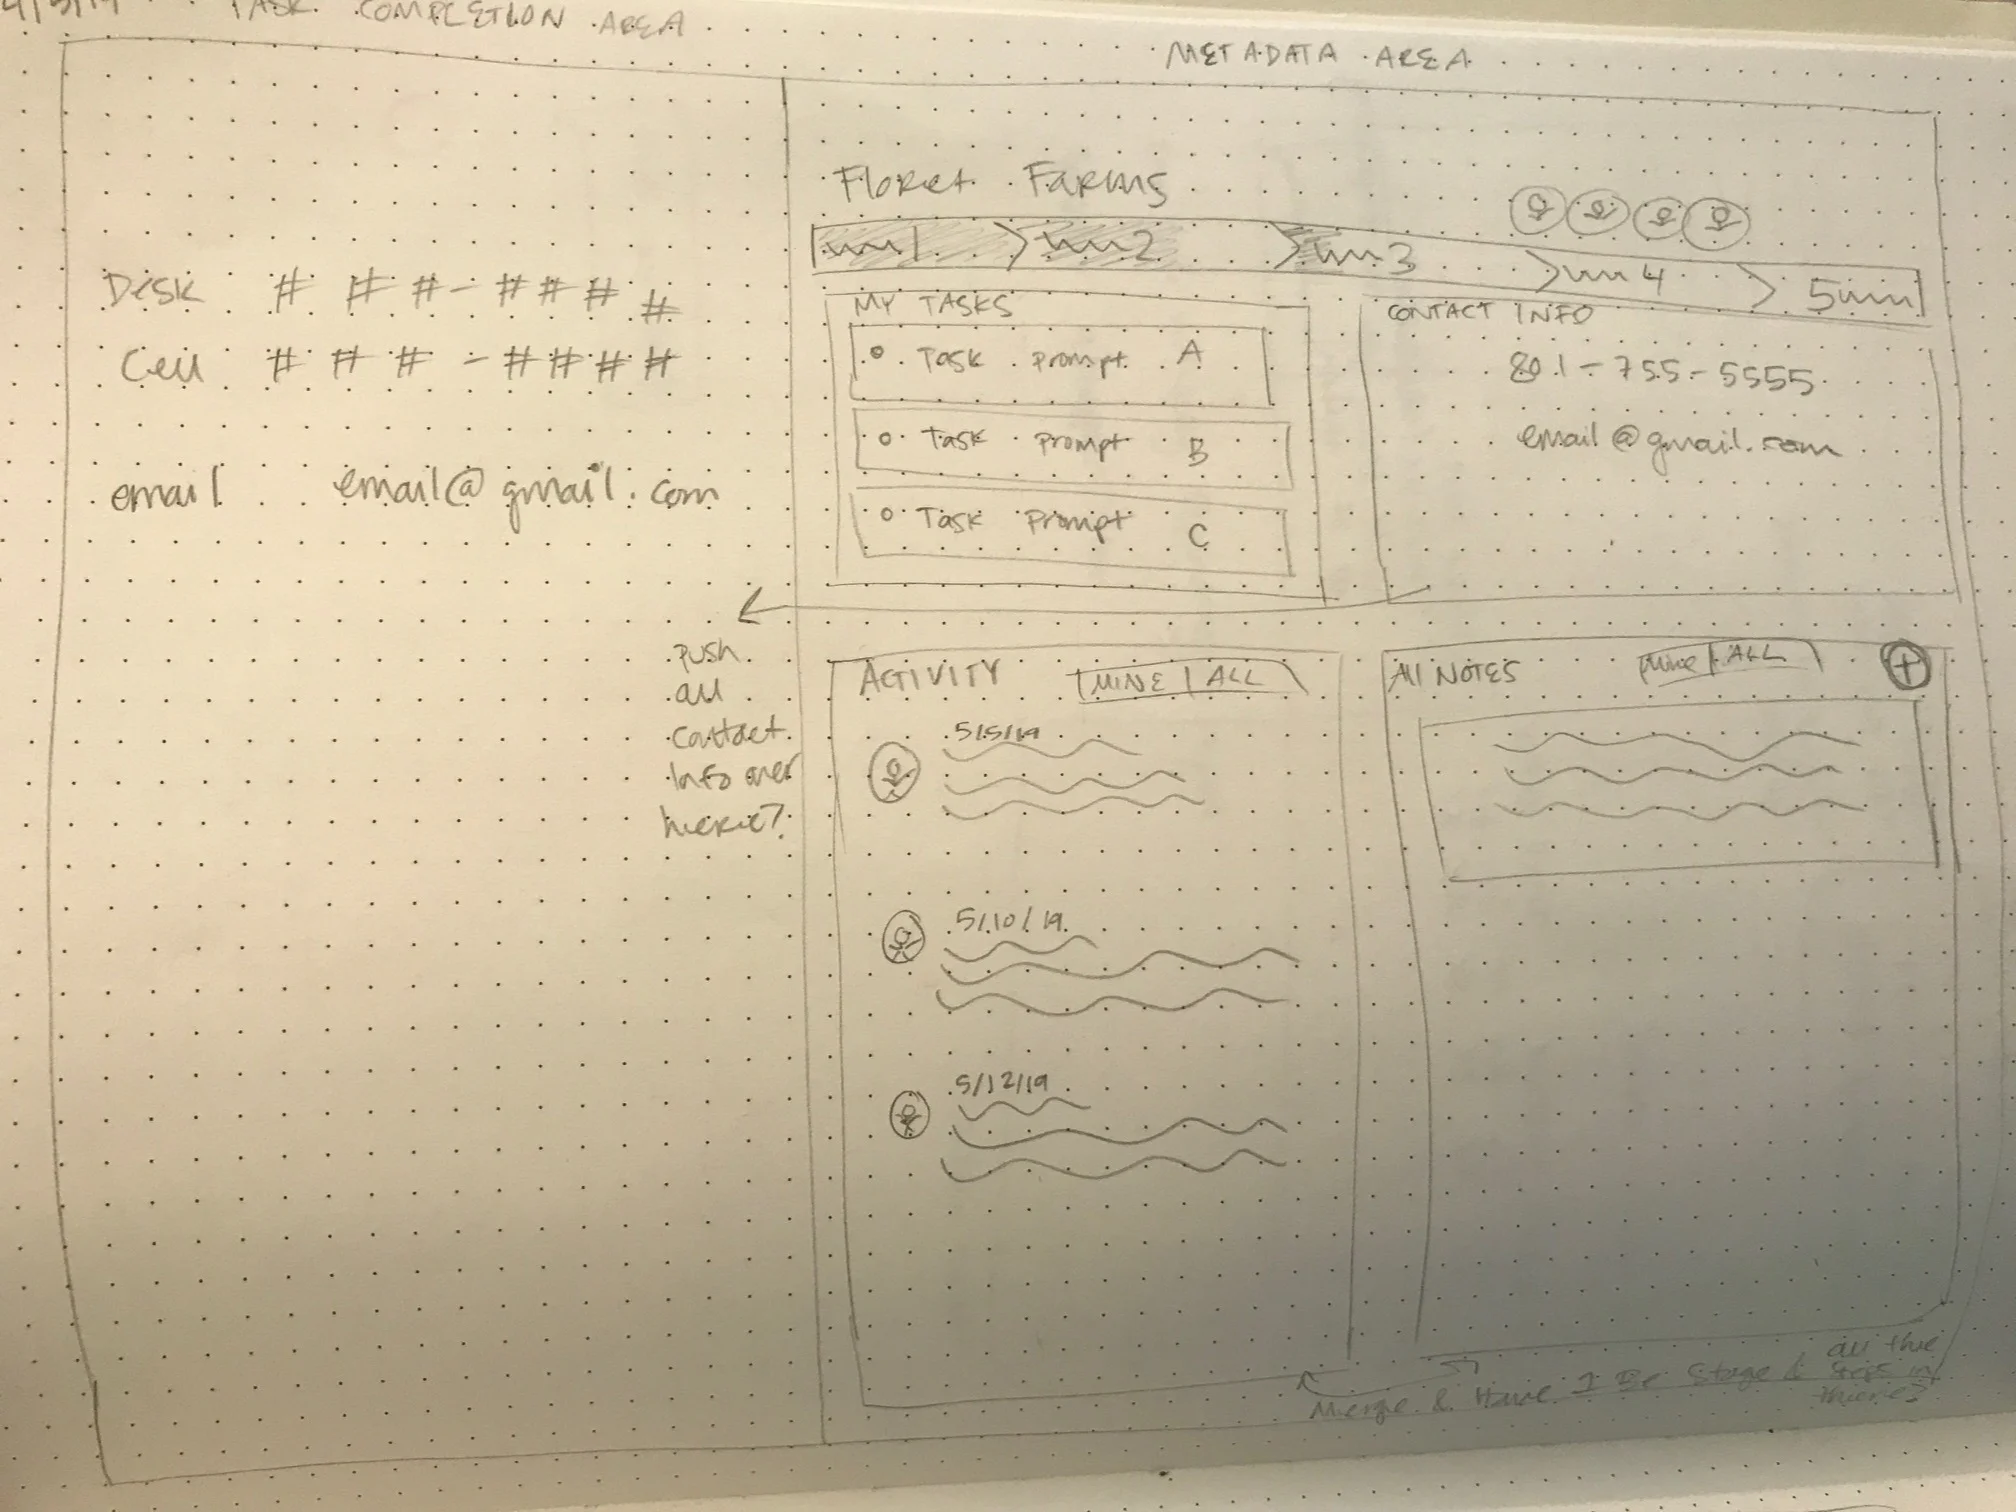 TASK COMPLETION AREA
METADATA AREA
Desk # # # - # # # #
Cell # # # - # # # #
email email@gmail.com
push
all
contact
info over
here?
Floret Farms
1
2
3
4
5
MY TASKS
Task Prompt A
Task Prompt B
Task Prompt C
CONTACT INFO
801-755-5555
email@gmail.com
ACTIVITY MINE | ALL
5/5/19
5/10/19
5/12/19
All NOTES Mine | ALL +
Merge & Have 1 Be Stage &
all the
steps in
there?